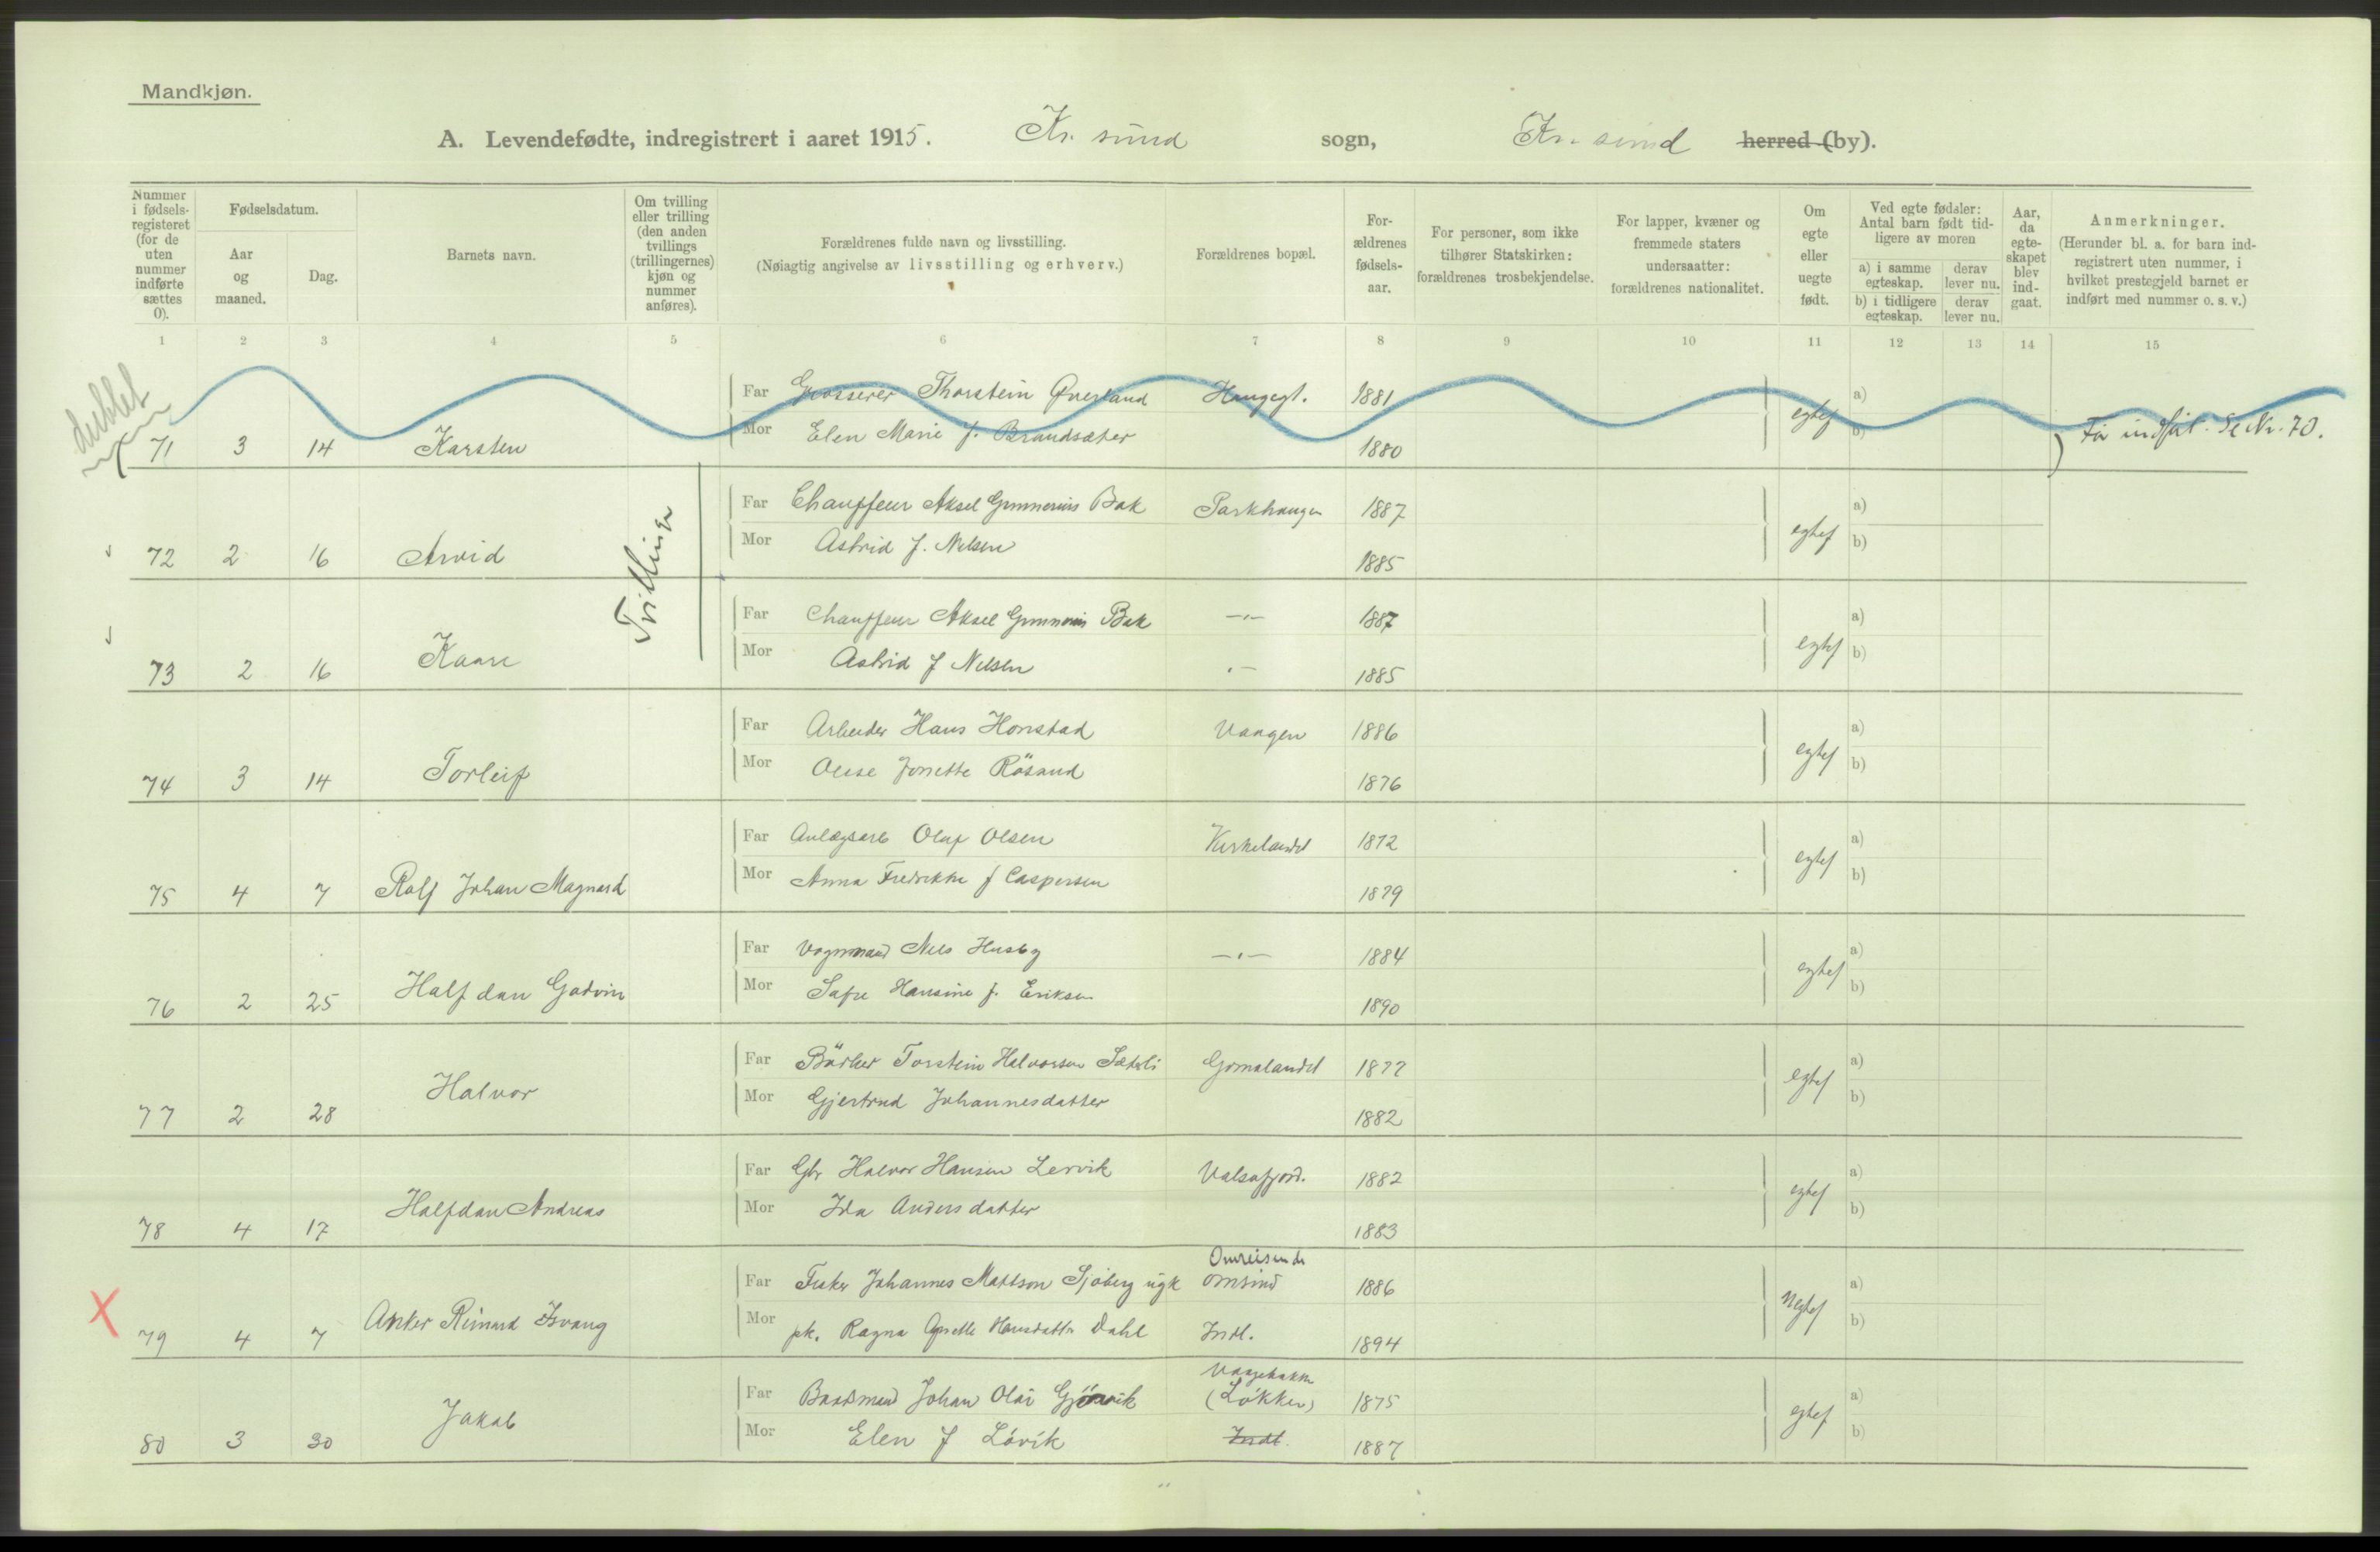 Mandkjøn.
A. Levendefødte, indregistrert i aaret 1915. Kr. sund sogn, Kr. sund herred (by).
Nummer i fødsels-registeret (for de uten nummer indførte sættes 0).
Fødselsdatum.
Aar og maaned.
Dag.
Barnets navn.
Om tvilling eller trilling (den anden tvillings (trillingernes) kjøn og nummer anføres).
Forældrenes fulde navn og livsstilling.
(Nøiagtig angivelse av livsstilling og erhverv.)
Forældrenes bopæl.
For-ældrenes fødsels-aar.
For personer, som ikke tilhører Statskirken: forældrenes trosbekjendelse.
For lapper, kvæner og fremmede staters undersaatter: forældrenes nationalitet.
Om egte eller uegte født.
Ved egte fødsler: Antal barn født tid-ligere av moren
a) i samme egteskap.
derav lever nu.
b) i tidligere egteskap.
derav lever nu.
Aar, da egte-skapet blev ind-gaat.
Anmerkninger.
(Herunder bl. a. for barn ind-registrert uten nummer, i hvilket prestegjeld barnet er indført med nummer o. s. v.)
1 2 3 4 5 6 7 8 9 10 11 12 13 14 15
dublet
Far Grosserer Thorstein Øverland Haugegt. 1881 a)
71 3 14 Karsten Mor Elen Marie f. Brandsæter 1880 egtef b) Før indført. Se Nr. 70.
Far Chauffeur Aksel Gunnerius Bak Parkhaugen 1887 a)
72 2 16 Arvid Mor Astrid f. Nilsen 1885 egtef b)
Tvillinger
Far Chauffeur Aksel Gunnerius Bak —"— 1887 a)
73 2 16 Kaare Mor Astrid f Nilsen 1885 egtef b)
Far Arbeider Hans Honstad Vaagen 1886 a)
74 3 14 Torleif Mor Jonette Røsand 1876 egtef b)
Far Anlægsarb Oluf Olsen Kirkelandet 1872 a)
75 4 7 Rolf Johan Magnard Mor Anna Fredrikke f Caspersen 1879 egtef b)
Far Vognmand Nils Husby —"— 1884 a)
76 2 25 Halfdan Godvin Mor Hansine f. Eriksen 1890 egtef b)
Far Torstein Halvorsen Sæterli Gomalandet 1877 a)
77 2 28 Halvor Mor Gjertrud Johannesdatter 1882 egtef b)
Far Gbr Halvor Hansen Lervik Valsøfjord. 1882 a)
78 4 17 Halfdan Andreas Mor Ida Andersdatter 1883 egtef b)
Omreisende
X
Far Fisker Johannes Mattson Sjøberg ugk 1886 a)
79 4 7 Anker Rimard Mor pk. Ragna Hansdatter Dahl Indl. 1894 Uegtef b)
Far Baadsmand Johan Olai Gjørvik (Løkken) 1875 a)
80 3 30 Jakob Mor Elen f Løvik Indl. 1887 egtef b)